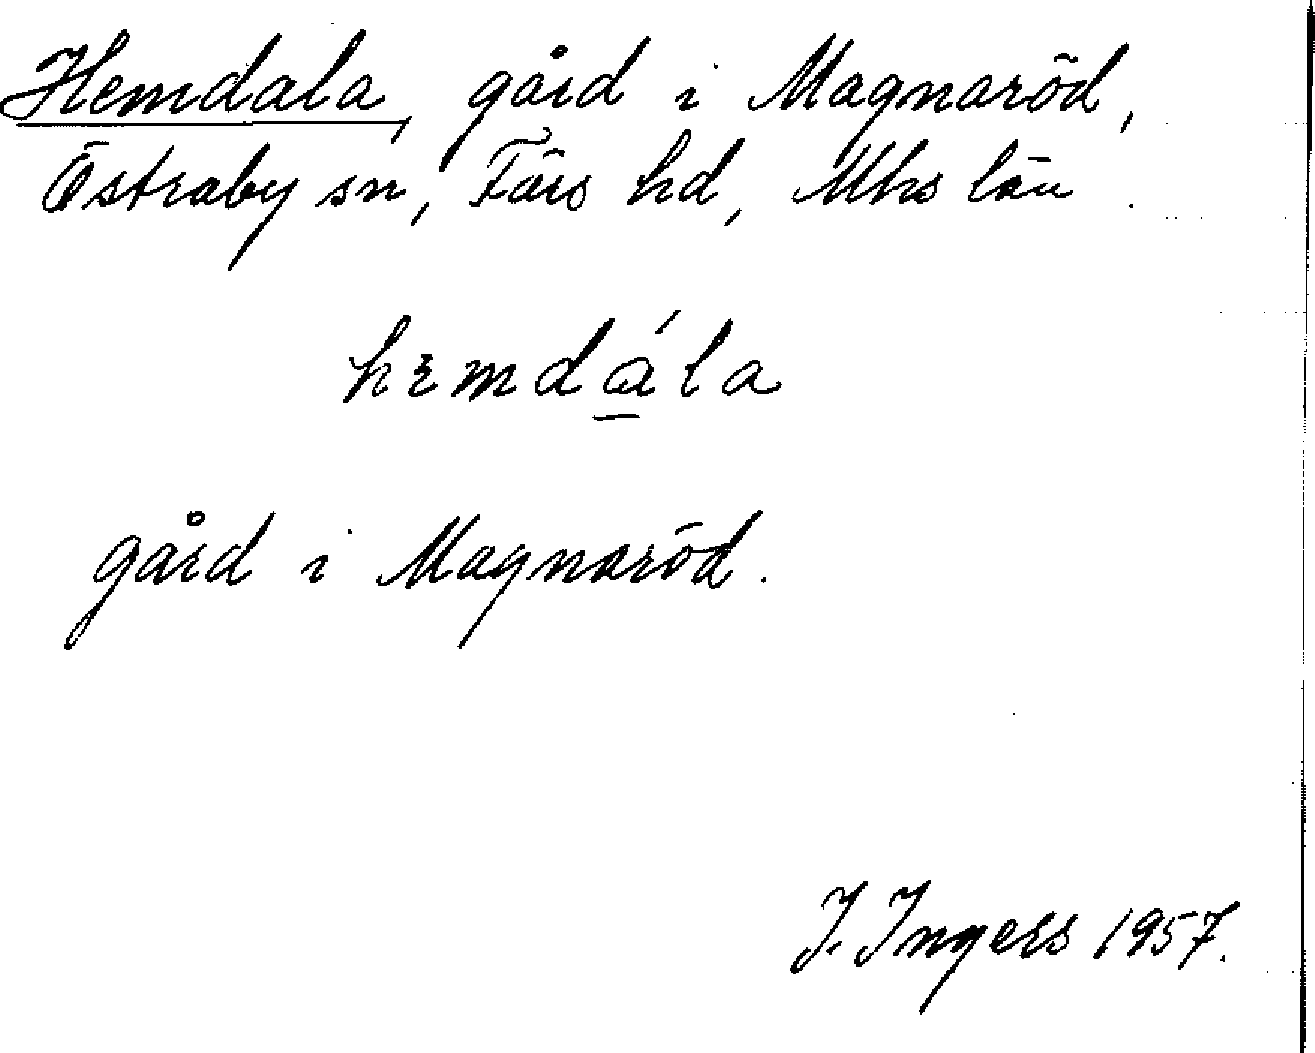 Hemdala, gård i Magnaröd,
Östraby sn, Färs hd, Mhs län.
hemdála
gård i Magnaröd.
I. Ingers 1957.